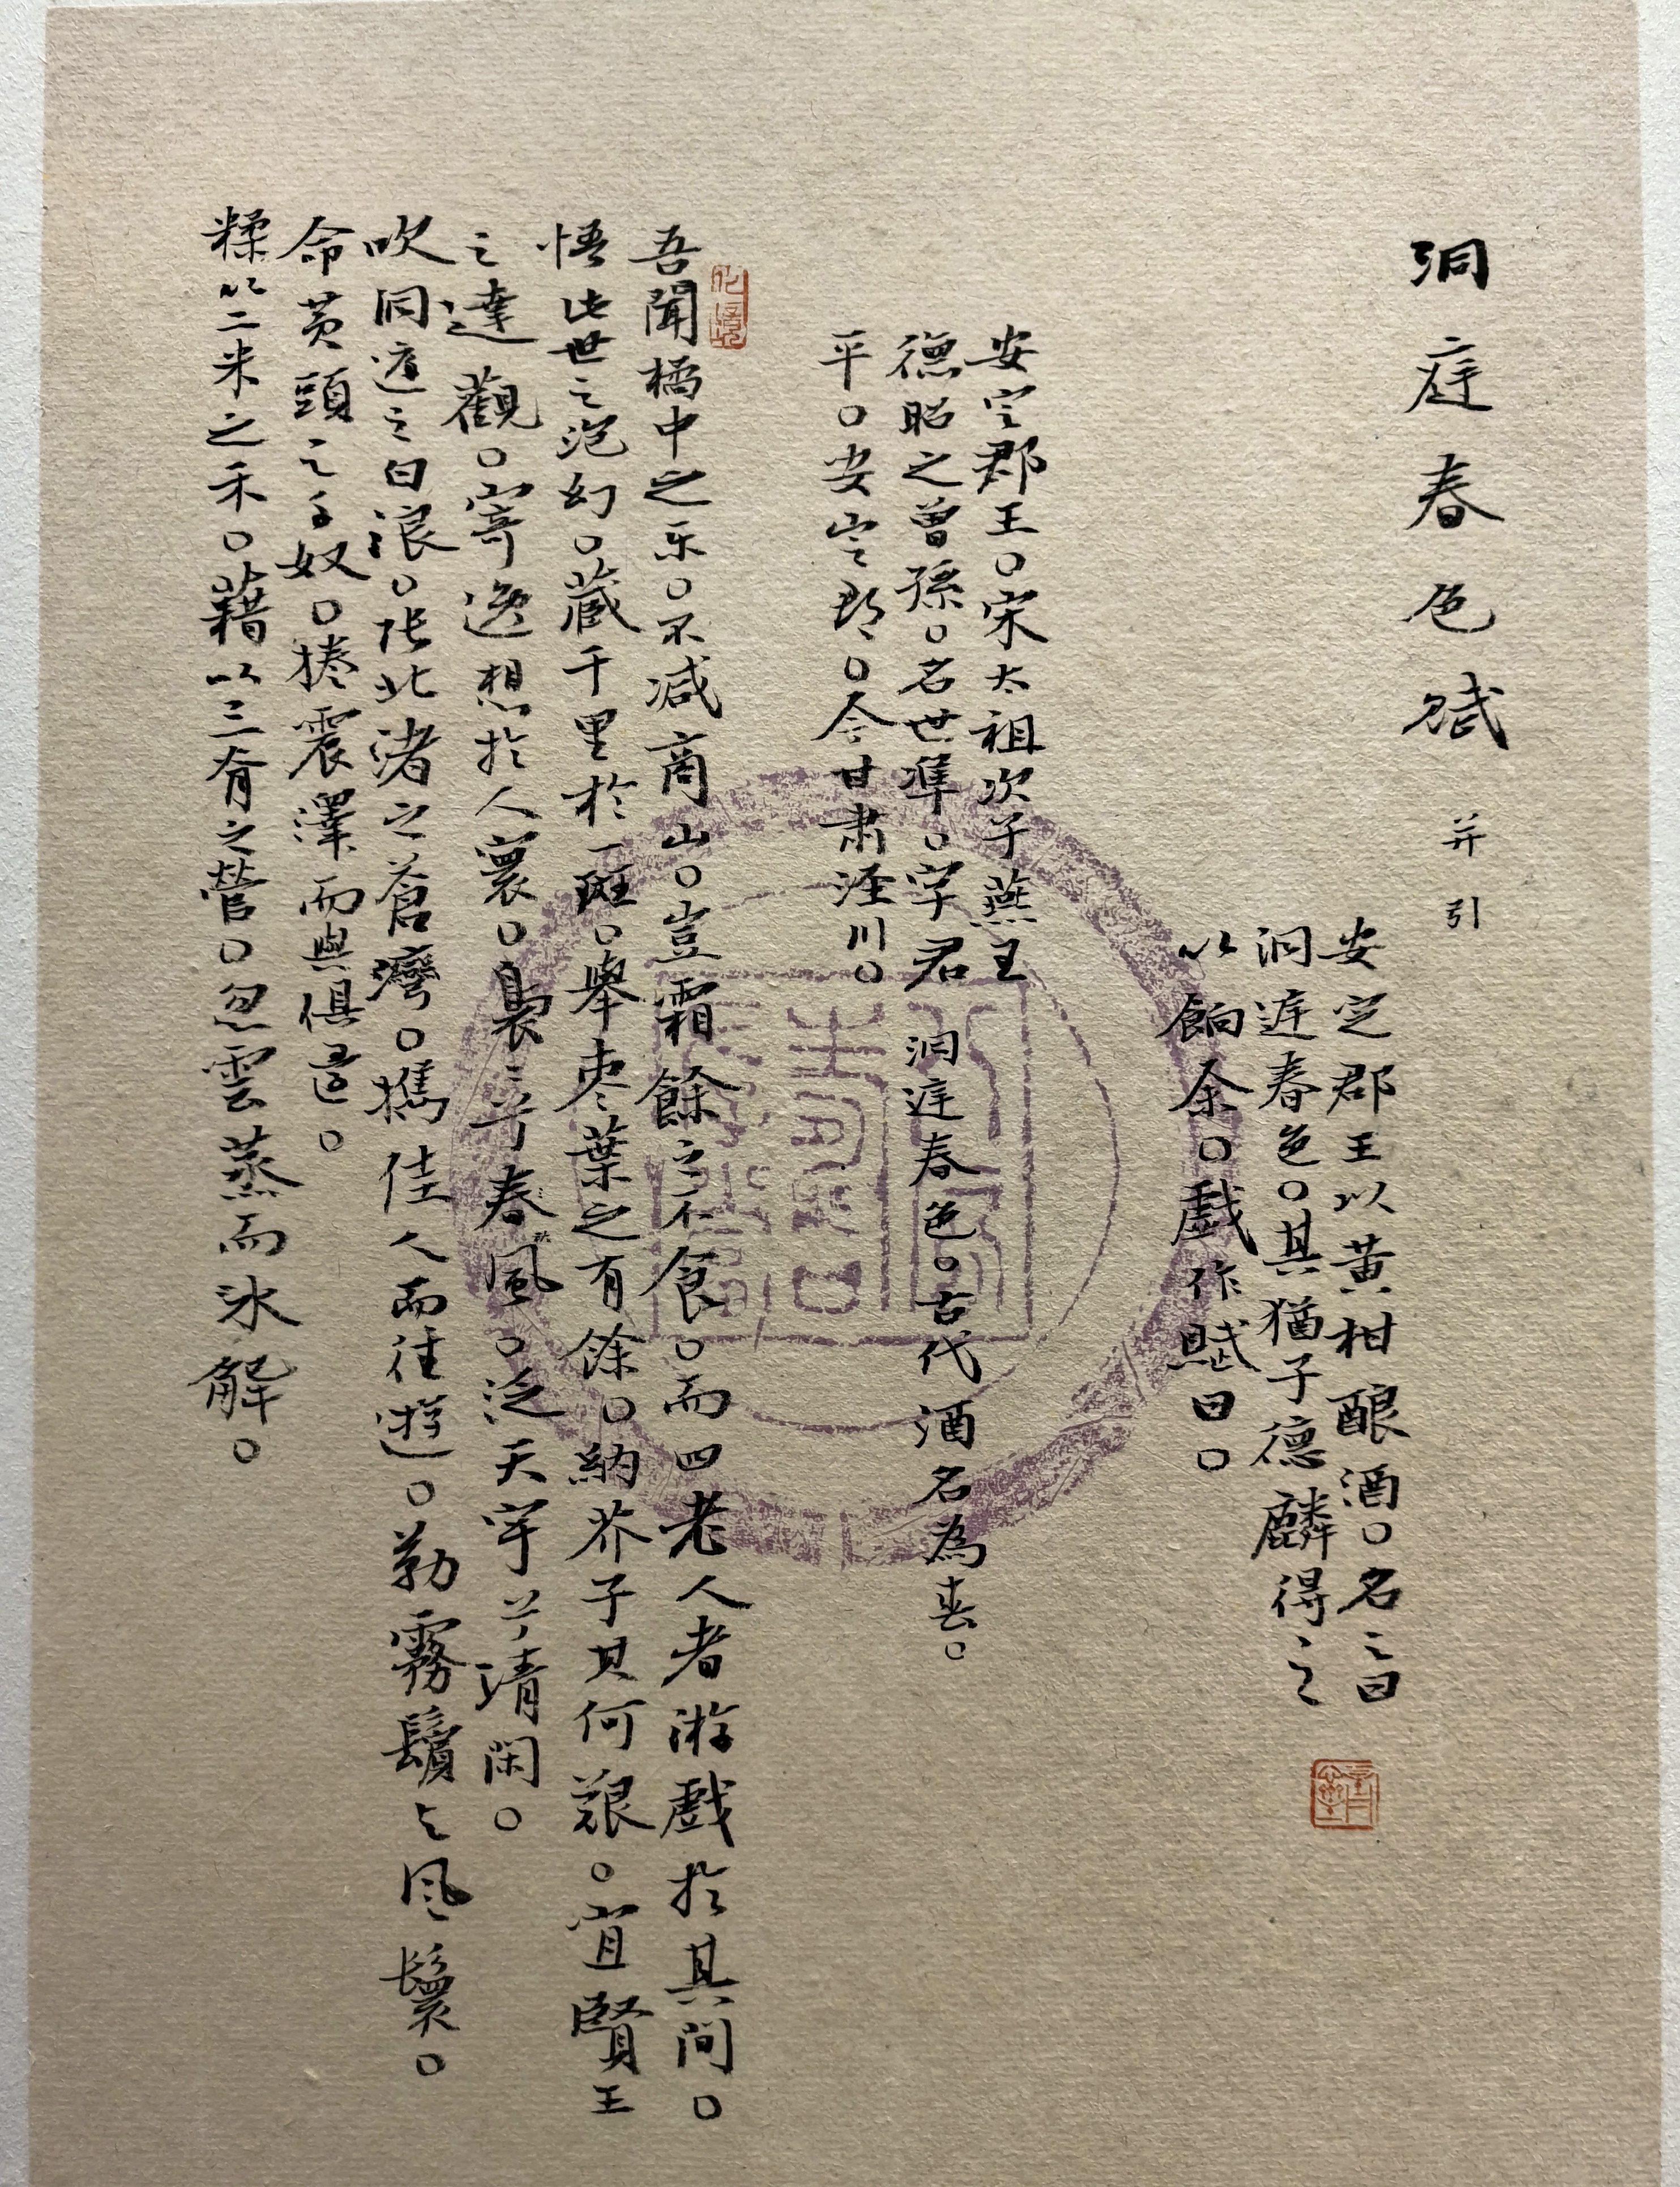 洞庭春色賦 并引
安定郡王以黄柑酿酒。名之曰
洞庭春色。其猶子德麟得之
以餉余。戲作賦曰。
安定郡王。宋太祖次子燕王
德昭之曾孫。名世準。字君
平。安定郡。今甘肅涇川。
洞庭春色。古代酒名為春。
吾聞橘中之乐。不减商山。豈霜餘之不食。而四老人者游戲於其间。
悟此世之泡幻。藏千里於一斑。舉枣葉之有餘。納芥子其何艱。宜賢王
之達觀。寄逸想於人寰。裊之兮春風。泛天宇兮清閑。
吹洞庭之白浪。张北渚之蒼灣。攜佳人而往遊。勒霧鬢之風鬟。
命黄頭之千奴。捲震澤而與俱還。
糅以二米之禾。藉以三脊之菅。忽雲蒸而冰解。